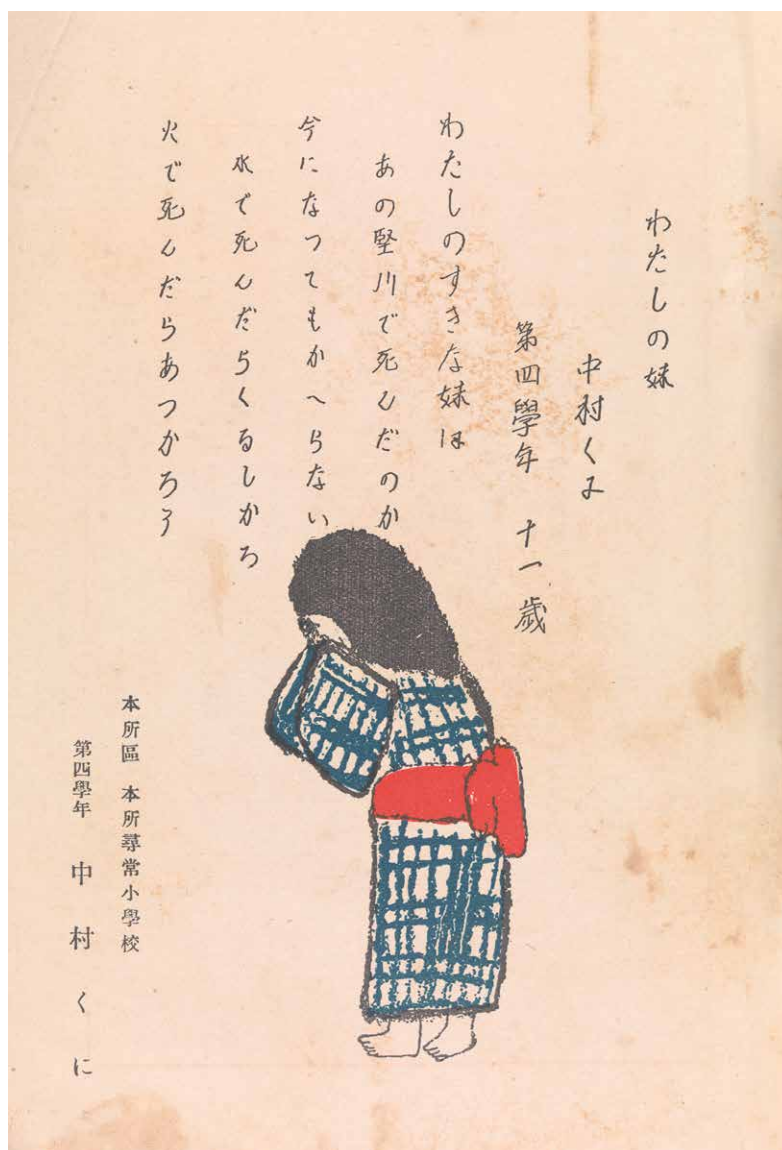 わたしの妹
中村くに
第四學年 十一歳
わたしのすきな妹は
あの堅川で死んだのか
今になつてもかへらない
水で死んだらくるしかろ
火で死んだらあつかろう
本所區 本所尋常小學校
第四學年 中村くに